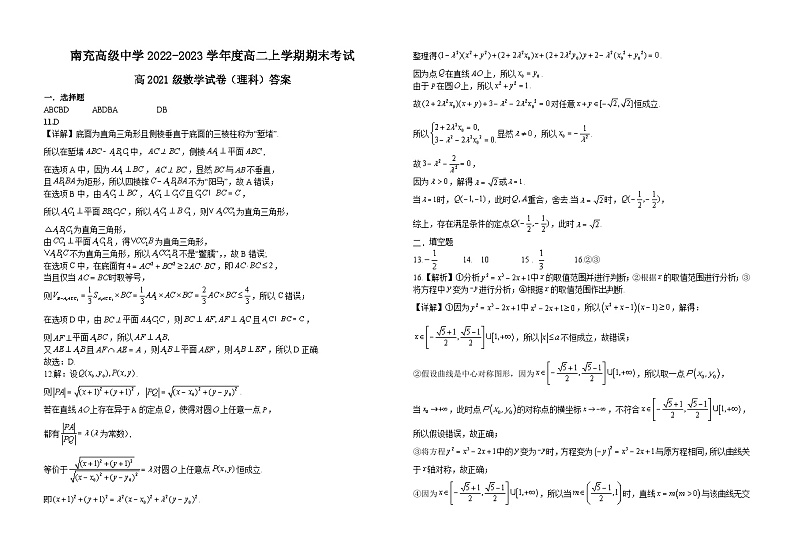 南充高级中学 2022-2023 学年度高二上学期期末考试
高 2021 级数学试卷（理科）答案
一．选择题
ABCBD ABDBA DB
11.D
【详解】底面为直角三角形且侧棱垂直于底面的三棱柱称为“堑堵”.
所以在堑堵ABC-A₁B₁C₁中，AC⊥BC，侧棱AA₁⊥平面ABC，
在选项 A 中，因为AA₁⊥BC，AC⊥BC，
且 为矩形，所以四棱锥 不为“阳马”，故 A 错误；
在选项 B 中，由A₁C₁⊥B₁C₁，
所以A₁C₁⊥平面BB₁C₁C，
为直角三角形，
由CC₁⊥平面A₁B₁C₁，得 为直角三角形，
不为直角三角形，所以 不是“鳖臑”，，故 B 错误.
在选项 C 中，在底面有4=AC²+BC²≥2AC·BC，即AC·BC≤2，
当且仅当AC=BC时取等号，
则 ，所以 C 错误；
在选项 D 中，由BC⊥平面AA₁C₁C，则BC⊥AF, AF⊥A₁C 且A₁C∩BC=C，
则AF⊥平面A₁BC，所以AF⊥A₁B，
又AE⊥A₁B 且AF∩AE=A，则A₁B⊥平面AEF，则A₁B⊥EF，所以 D 正确
故选：D.
12解：设Q(x₀,y₀),P(x,y).
则|PA|=√((x+1)²+(y+1)²)，|PQ|=√((x-x₀)²+(y-y₀)²).
若在直线AO上存在异于 A 的定点Q，使得对圆O上任意一点P，
都有|PA|/|PQ|=λ(λ为常数)，
等价于√((x+1)²+(y+1)²)/√((x-x₀)²+(y-y₀)²)=λ对圆O上任意点P(x,y)恒成立.
即(x+1)²+(y+1)²=λ²(x-x₀)²+λ²(y-y₀)².
整理得(1-λ²)(x²+y²)+(2+2λ²x₀)x+(2+2λ²y₀)y+2-λ²(x₀²+y₀²)=0.
因为点Q在直线AO上，所以x₀=y₀.
由于P在圆O上，所以x²+y²=1.
故(2+2λ²x₀)(x+y)+3-λ²-2λ²x₀²=0对任意x+y∈[-√2,√2]恒成立.
所以{2+2λ²x₀=0, 3-λ²-2λ²x₀²=0. 显然λ≠0，所以x₀=-1/λ².
故3-λ²-2/λ²=0，
因为λ>0，解得λ=√2或λ=1.
当λ=1时，Q(-1,-1)，此时Q,A重合，舍去.当λ=√2时，Q(-1/2,-1/2)，
综上，存在满足条件的定点Q(-1/2,-1/2)，此时λ=√2.
二．填空题
13.-1/2 14. 10 15．1/3 16②③
16【解析】①分析y²=x³-2x+1中x的取值范围并进行判断；②根据x的取值范围进行分析；③
将方程中y变为-y进行分析；④根据x的取值范围作出判断.
【详解】①因为y²=x³-2x+1中x³-2x+1≥0，所以(x²+x-1)(x-1)≥0，解得：
x∈[-(√5+1)/2,(√5-1)/2]∪[1,+∞)，所以|x|≤a不恒成立，故错误；
②假设曲线是中心对称图形，因为x∈[-(√5+1)/2,(√5-1)/2]∪[1,+∞)，所以取一点P(x₀,y₀)，
当x₀→+∞，此时点P(x₀,y₀)的对称点的横坐标x→-∞，不符合x∈[-(√5+1)/2,(√5-1)/2]∪[1,+∞)，
所以假设错误，故正确；
③将方程y²=x³-2x+1中的y变为-y时，方程变为(-y)²=x³-2x+1与原方程相同，所以曲线关
于x轴对称，故正确；
④因为x∈[-(√5+1)/2,(√5-1)/2]∪[1,+∞)，所以当m∈((√5-1)/2,1)时，直线x=m(m>0)与该曲线无交